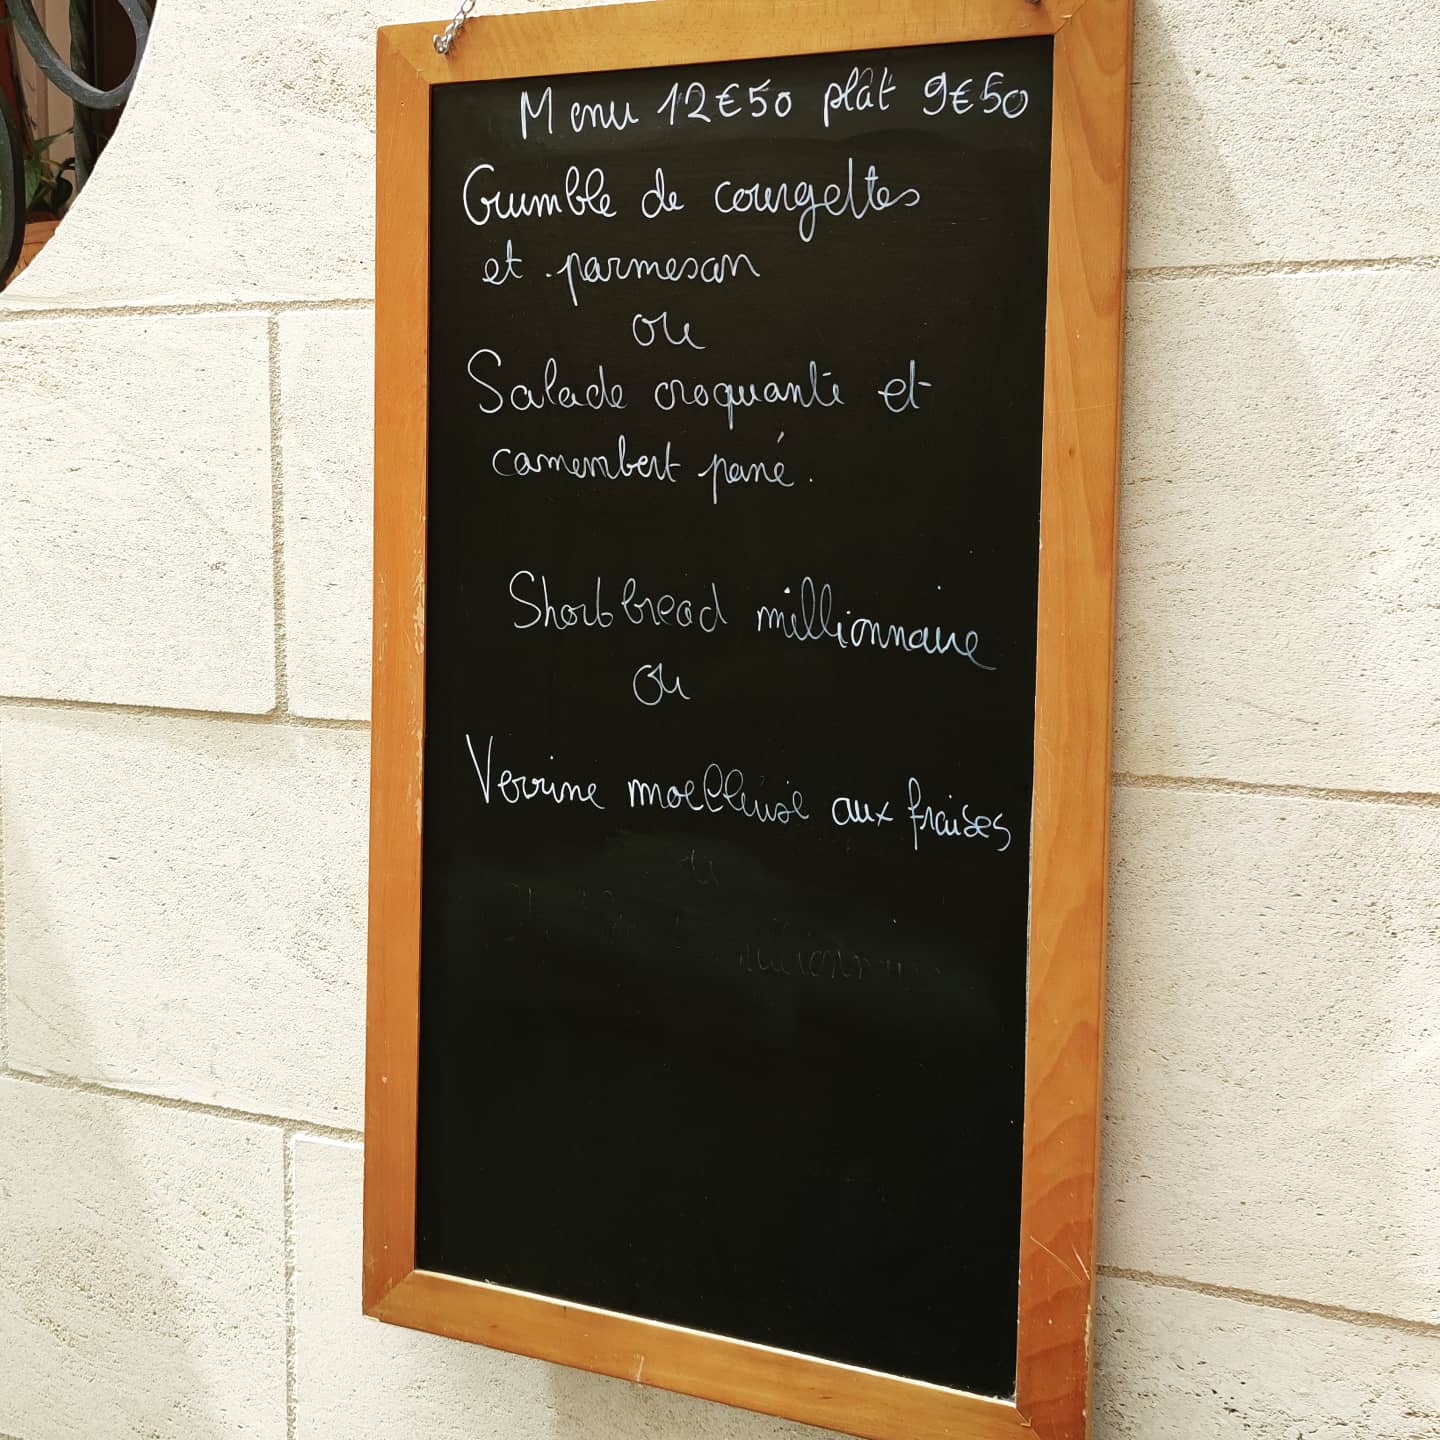 Menu 12€50 plât 9€50
Crumble de courgettes
et parmesan
ou
Salade croquante et
camembert pané.
Shortbread millionnaire
ou
Verrine moelleuse aux fraises